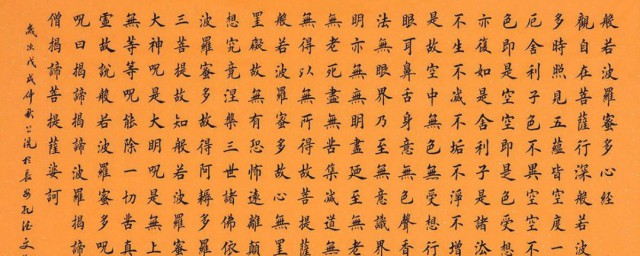 般若波羅蜜多心經
觀自在菩薩行深般若波
多時照見五蘊皆空度一
厄舍利子色不異空空不
色即是空空即是色受想
亦復如是舍利子是諸法
不生不滅不垢不淨不增
是故空中無色無受想行
眼耳鼻舌身意無色聲香
法無眼界乃至無意識界
明亦無無明盡乃至無老
無老死盡無苦集滅道無
無得以無所得故菩提薩
般若波羅蜜多故心無罣
罣礙故無有恐怖遠離顛
想究竟涅槃三世諸佛依
波羅蜜多故得阿耨多羅
三菩提故知般若波羅蜜
大神咒是大明咒是無上
無等等咒能除一切苦真
靈故說般若波羅蜜多咒
呪曰揭諦揭諦波羅揭諦
僧揭諦菩提薩婆訶
歲次戊戌仲秋於長安